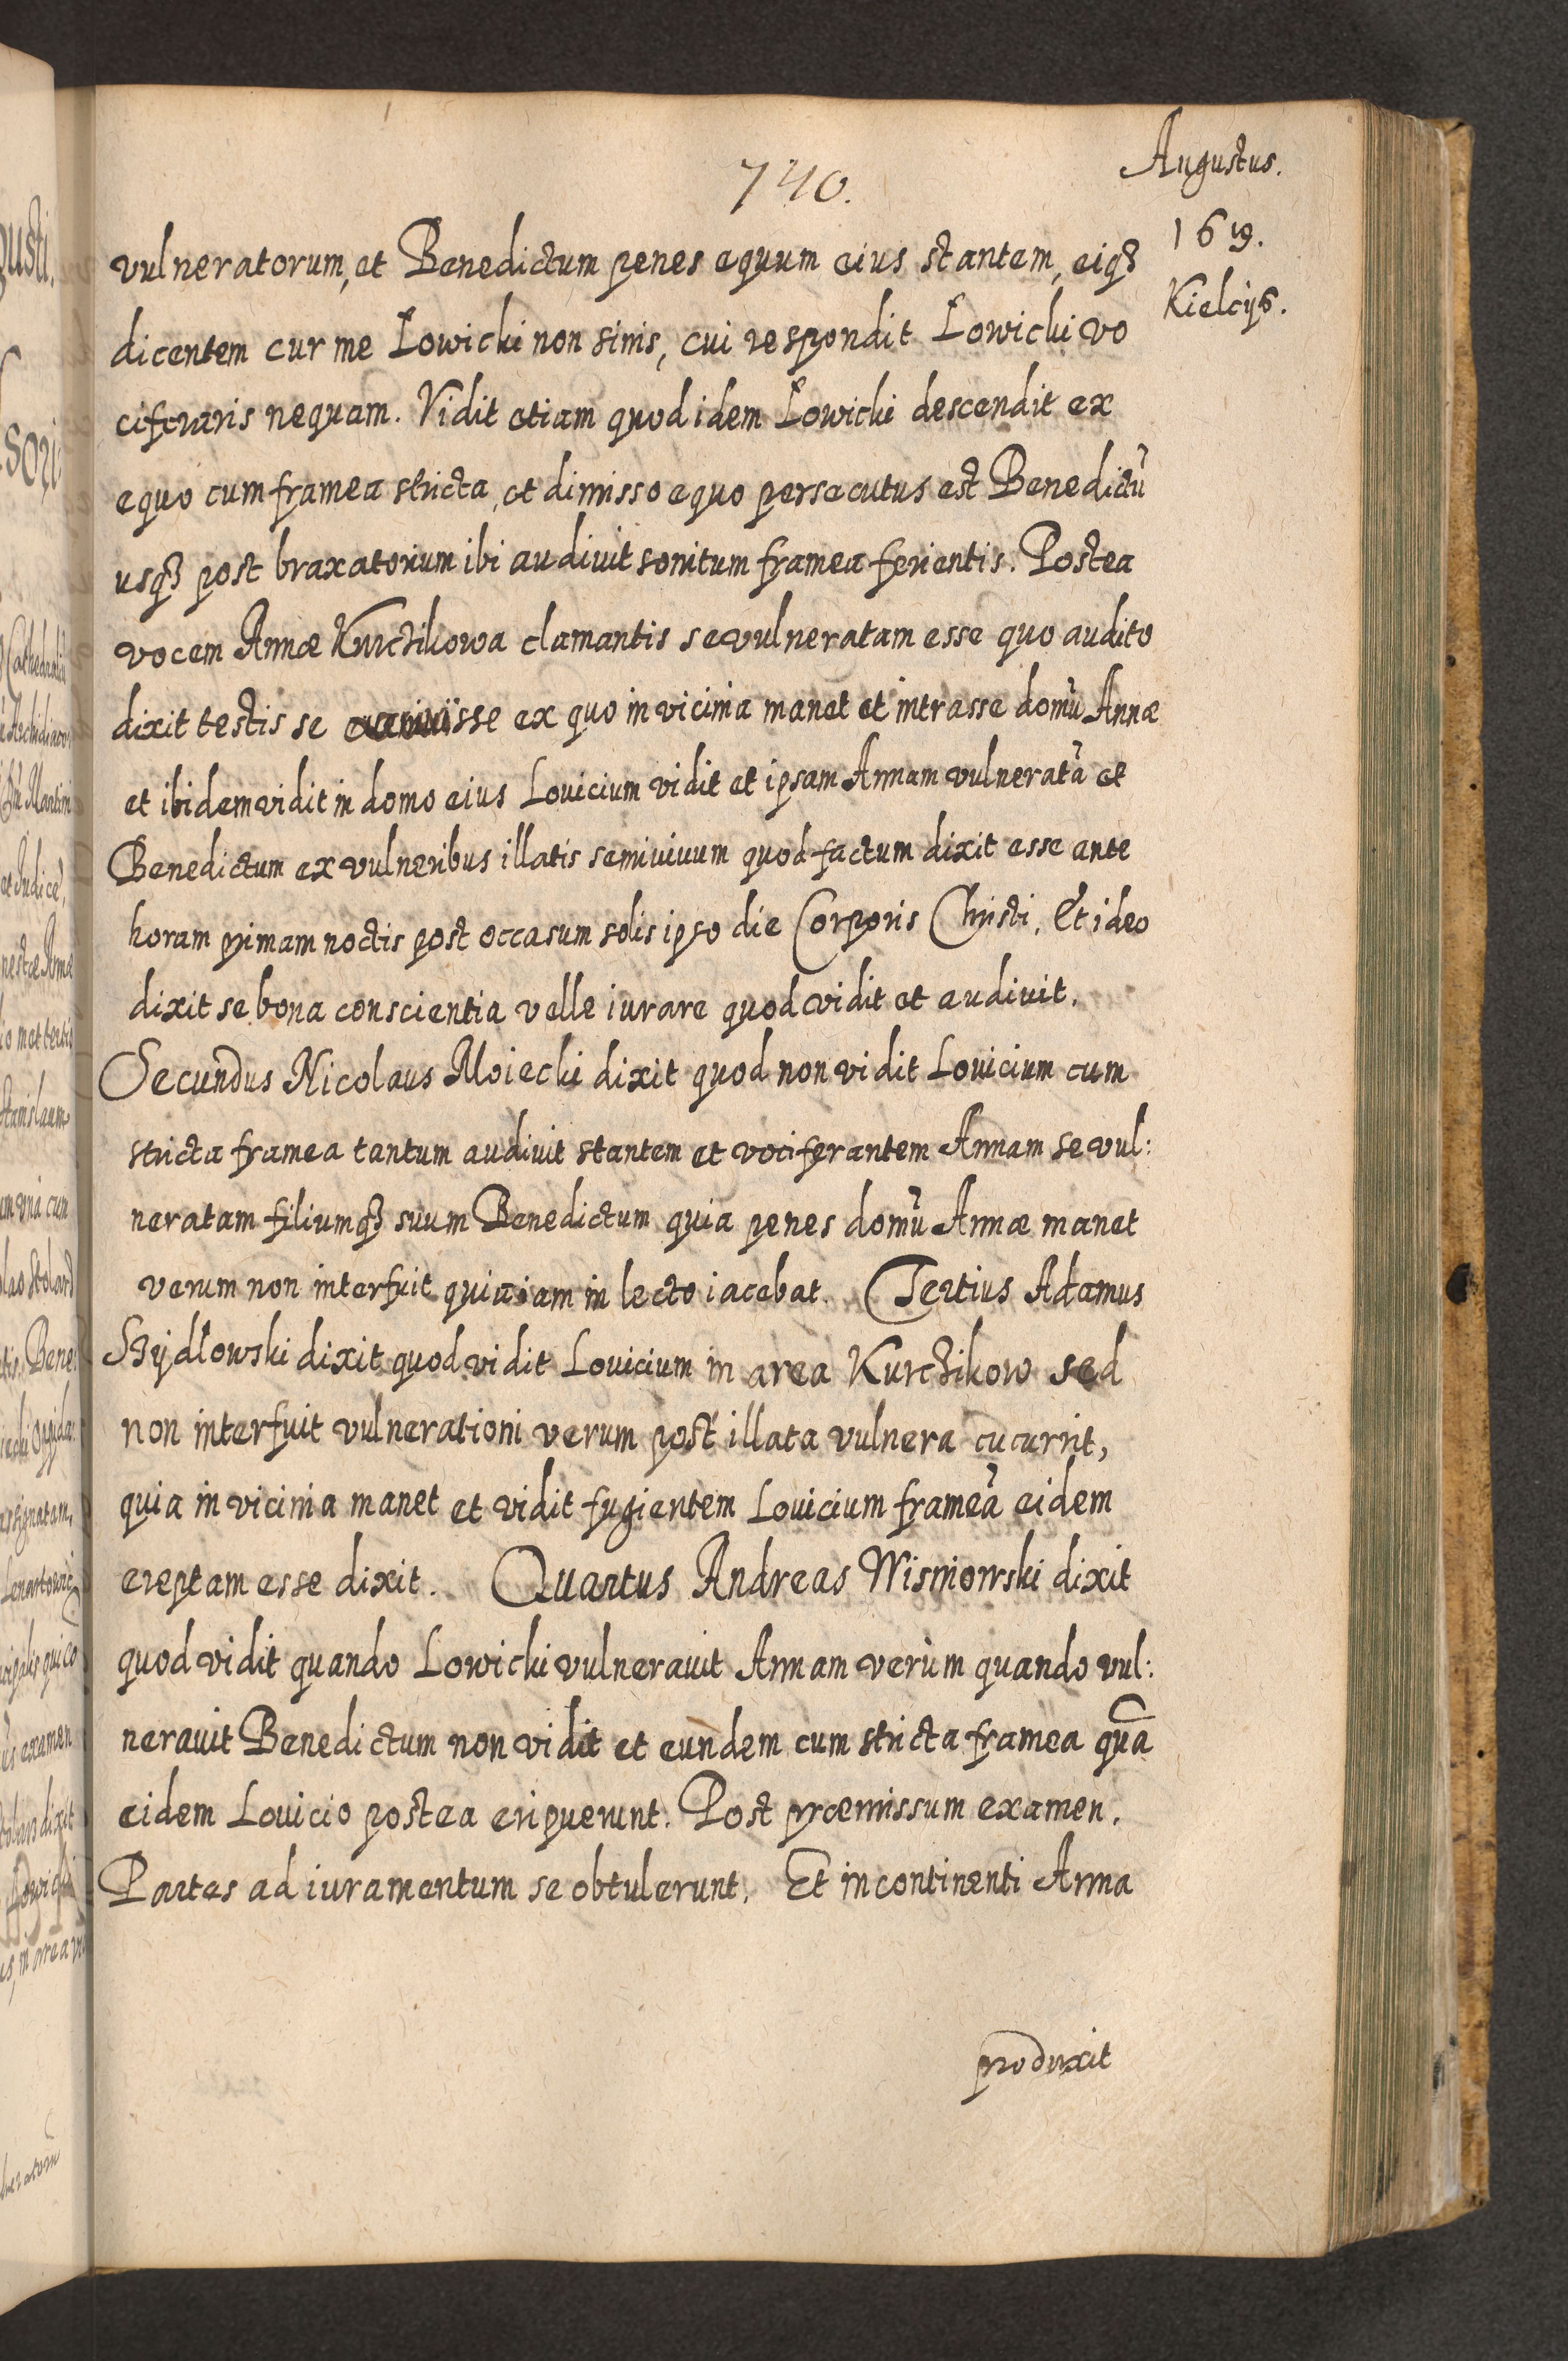 740.
Augustus.
1619.
Kielcijs.
vulneratorum, et Benedictum penes equum eius stantem, eiqȝ
dicentem cur me Łowicki non sinis, cui respondit Łowicki vo
ciferaris nequam. Vidit etiam quod idem Łowicki descendit ex
equo cum framea stricta, et dimisso equo persecutus est Benedictũ
usqȝ post braxatorium ibi audivit sonitum framea ferientis. Postea
vocem Annæ Kurczikowa clamantis se vulneratam esse quo audito
dixit testis se ex quo in vicinia manet et intrasse domũ Annæ
et ibidem vidit in domo eius Lovicium vidit et ipsam Annam vulneratã et
Benedictum ex vulneribus illatis semivivum quod factum dixit esse ante
horam primam noctis post occasum solis ipso die Corporis Christi. Et ideo
dixit se bona conscientia velle iurare quod vidit et audivit.
Secundus Nicolaus Moiecki dixit quod non vidit Lovicium cum
stricta framea tantum audivit stantem et vociferantem Annam se vul:
neratam filiumqȝ suum Benedictum quia penes domũ Annæ manet
verum non interfuit quia iam in lecto iacebat. Tertius Adamus
Szÿdłowski dixit quod vidit Lovicium in area Kurczikow sed
non interfuit vulnerationi verum post illata vulnera cucurrit,
quia in vicinia manet et vidit fugientem Lovicium frameã eidem
ereptam esse dixit. Quartus Andreas Wisniowski dixit
quod vidit quando Lowicki vulneravit Annam verùm quando vul:
neravit Benedictum non vidit et eundem cum stricta framea quã
eidem Lovicio postea eripuerunt. Post præmissum examen.
Partes ad iuramentum se obtulerunt. Et in continenti Anna
produxit